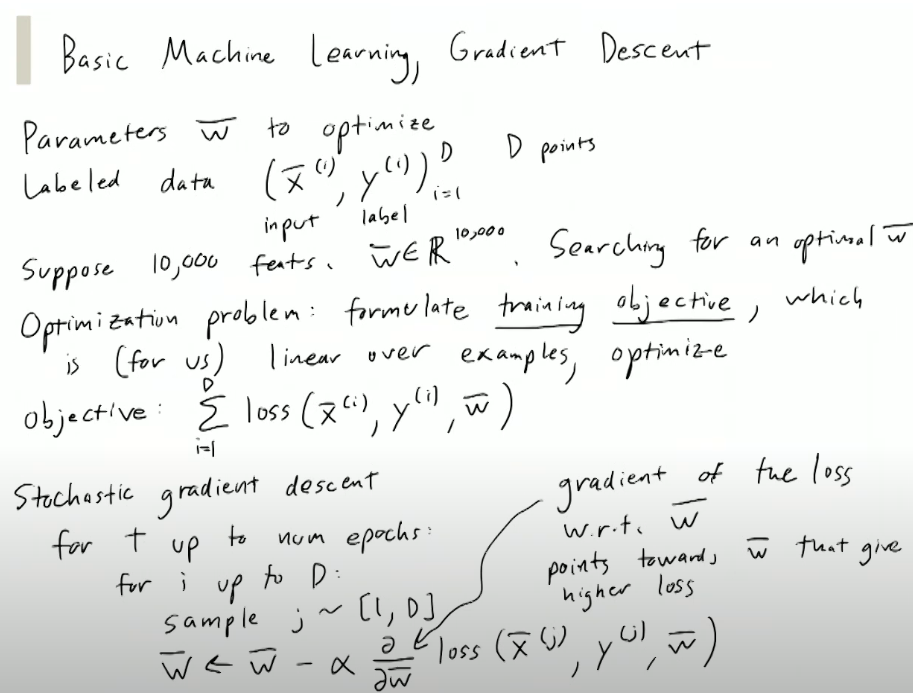 Basic Machine Learning, Gradient Descent
Parameters w̅ to optimize
Labeled data (x̅⁽ⁱ⁾, y⁽ⁱ⁾)ᴰᵢ₌₁ D points
input label
Suppose 10,000 feats. w̅ ∈ ℝ^10,000. Searching for an optimal w̅
Optimization problem: formulate training objective, which
is (for us) linear over examples, optimize
objective: ∑ᴰᵢ₌₁ loss (x̅⁽ⁱ⁾, y⁽ⁱ⁾, w̅)
Stochastic gradient descent
for t up to num epochs:
for i up to D:
sample j ~ [1, D]
w̅ ← w̅ - α ∂/∂w̅ loss (x̅⁽ʲ⁾, y⁽ʲ⁾, w̅)
gradient of the loss
w.r.t. w̅
points towards w̅ that give
higher loss